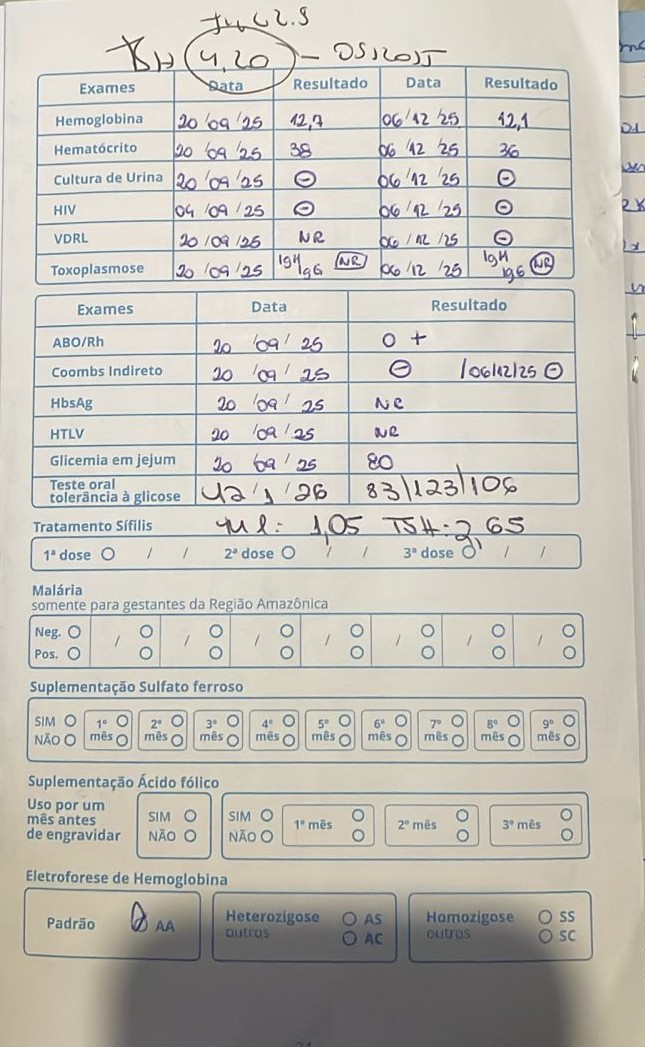 TSH (4,20) - 05/2025
Exames Data Resultado Data Resultado
Hemoglobina 20/09/25 12,7 06/12/25 12,1
Hematócrito 20/09/25 38 06/12/25 36
Cultura de Urina 20/09/25 ⊖ 06/12/25 ⊖
HIV 04/09/25 ⊖ 06/12/25 ⊖
VDRL 20/09/25 NR 06/12/25 ⊖
Toxoplasmose 20/09/25 IgM IgG NR 06/12/25 IgM IgG NR
Exames Data Resultado
ABO/Rh 20/09/25 O +
Coombs Indireto 20/09/25 ⊖ /06/12/25 ⊖
HbsAg 20/09/25 NR
HTLV 20/09/25 NR
Glicemia em jejum 20/09/25 80
Teste oral
tolerância à glicose 12/1/26 83/123/106
Tratamento Sífilis 1,05 TSH: 2,65
1ª dose / / 2ª dose / / 3ª dose / /
Malária
somente para gestantes da Região Amazônica
Neg. / / / / / / /
Pos.
Suplementação Sulfato ferroso
SIM 1º 2º 3º 4º 5º 6º 7º 8º 9º
NÃO mês mês mês mês mês mês mês mês mês
Suplementação Ácido fólico
Uso por um
mês antes
de engravidar
SIM
NÃO
SIM
NÃO
1º mês 2º mês 3º mês
Eletroforese de Hemoglobina
Padrão AA
Heterozigose AS
outros AC
Homozigose SS
outros SC